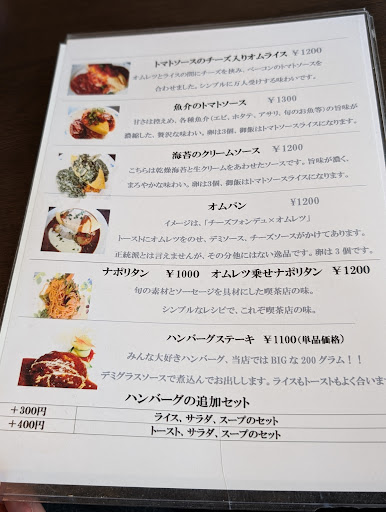 トマトソースのチーズ入りオムライス ￥1200
オムレツとライスの間にチーズを挟み、ベーコンのトマトソースを
合わせました。シンプルに万人受けする味わいです。
魚介のトマトソース ￥1300
甘さは控えめ、各種魚介(エビ、ホタテ、アサリ、旬のお魚等)の旨味が
濃縮した、贅沢な味わい。卵は3個、御飯はトマトソースライスになります。
海苔のクリームソース ￥1200
こちらは乾燥海苔と生クリームをあわせたソースです。旨味が濃く、
まろやかな味わい。卵は3個、御飯はトマトソースライスになります。
オムパン ￥1200
イメージは、「チーズフォンデュ×オムレツ」
トーストにオムレツをのせ、デミソース、チーズソースがかけてあります。
正統派とは言えませんが、その分他にはない逸品です。卵は 3 個です。
ナポリタン ￥1000 オムレツ乗せナポリタン ￥1200
旬の素材とソーセージを具材にした喫茶店の味。
シンプルなレシピで、これぞ喫茶店の味。
ハンバーグステーキ ￥1100(単品価格)
みんな大好きハンバーグ、当店では BIG な 200 グラム！！
デミグラスソースで煮込んでお出しします。ライスもトーストもよく合います
ハンバーグの追加セット
＋300円 ライス、サラダ、スープのセット
＋400円 トースト、サラダ、スープのセット